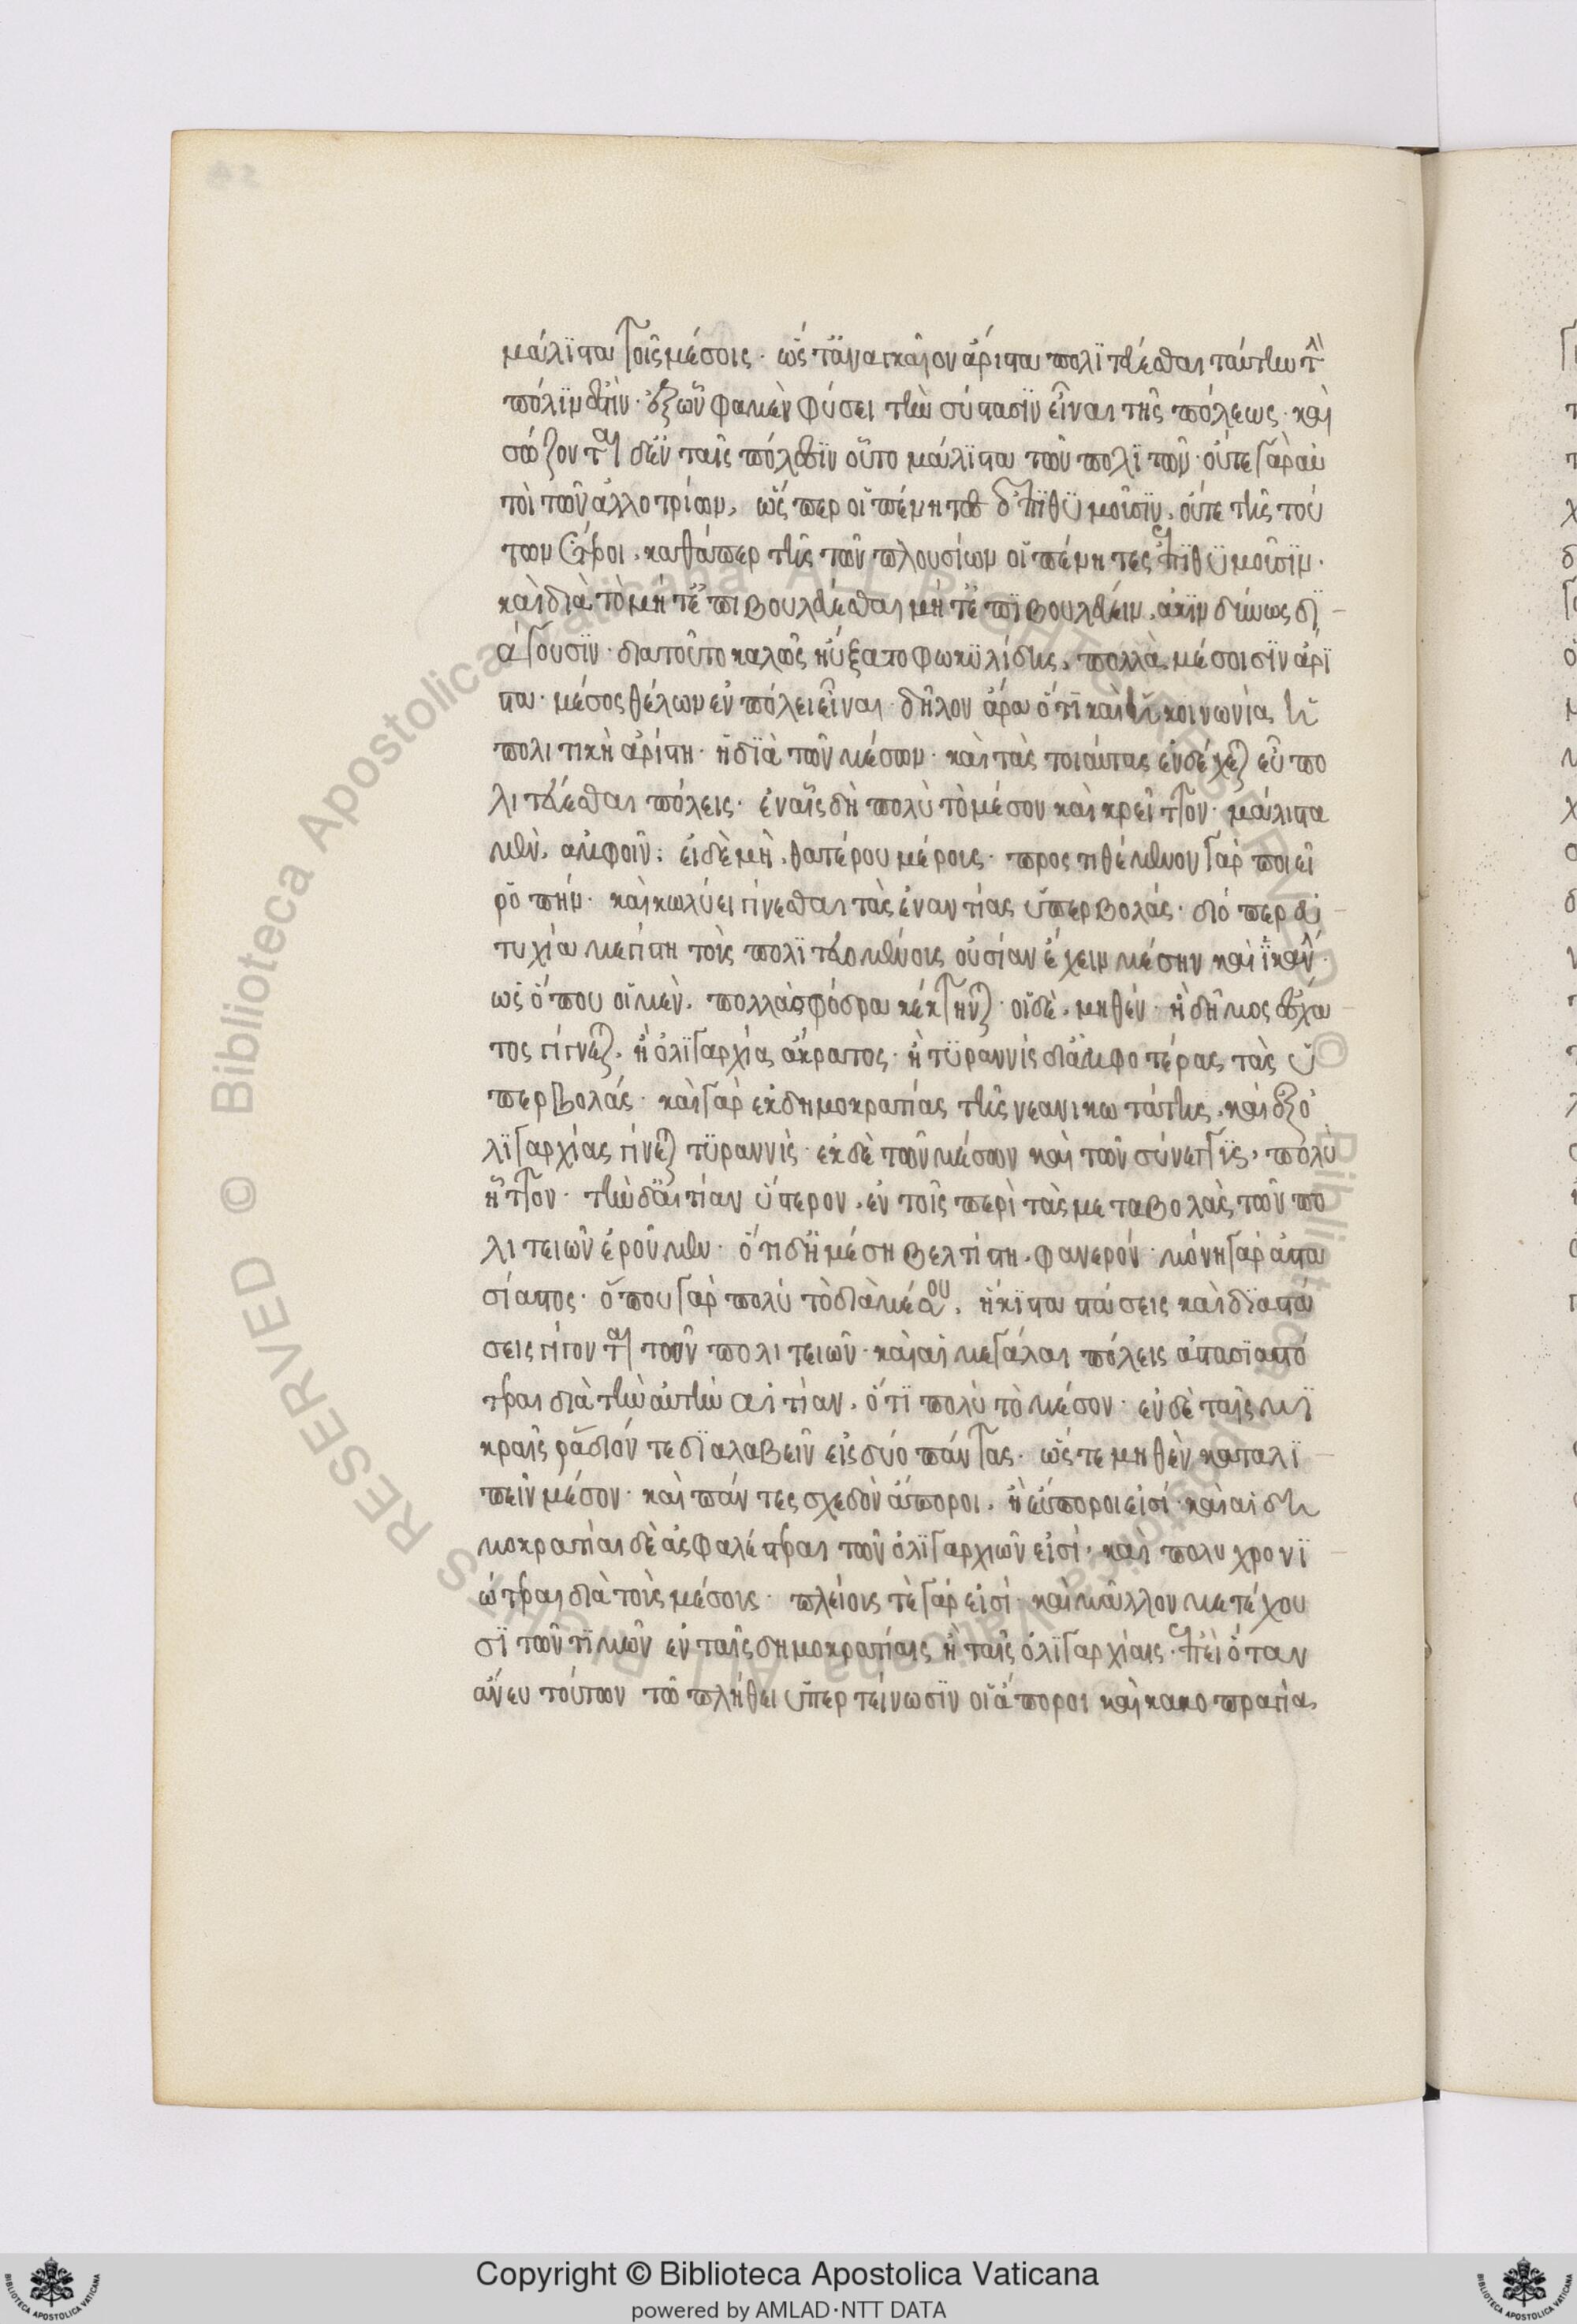 μάλιστα τοῖς μέσοις· ὥστ' ἀναγκαῖον ἄριστα πολιτεύεσθαι ταύτην τὴν
πόλιν ἐστὶν· ἐξ ὧν φαμὲν φύσει τὴν σύστασιν εἶναι τῆς πόλεως· καὶ
σώζονται δ' ἐν ταῖς πόλεσιν οὗτοι μάλιστα τῶν πολιτῶν· οὔτε γὰρ αὐ
τοὶ τῶν ἀλλοτρίων, ὥσπερ οἱ πένητες ἐπιθυμοῦσιν, οὔτε τῆς τού
των ἕτεροι, καθάπερ τῆς τῶν πλουσίων οἱ πένητες ἐπιθυμοῦσιν·
καὶ διὰ τὸ μήτ' ἐπιβουλεύεσθαι μήτ' ἐπιβουλεύειν, ἀκινδύνως δι
άγουσιν· διὰ τοῦτο καλῶς ηὔξατο φωκυλίδης, πολλὰ μέσοισιν ἄρι
στα· μέσος θέλω ἐν πόλει εἶναι· δῆλον ἄρα ὅτι καὶ ἡ κοινωνία ἡ
πολιτικὴ ἀρίστη· ἡ διὰ τῶν μέσων· καὶ τὰς τοιαύτας ἐνδέχεται εὖ πο
λιτεύεσθαι πόλεις· ἐν αἷς δὴ πολὺ τὸ μέσον καὶ κρεῖττον· μάλιστα
μὲν, ἀμφοῖν· εἰ δὲ μὴ, θατέρου μέρους· προστιθέμενον γὰρ ποιεῖ
ῥοπήν· καὶ κωλύει γίνεσθαι τὰς ἐναντίας ὑπερβολάς· διόπερ εὐ
τυχία μεγίστη τοὺς πολιτευομένους οὐσίαν ἔχειν μέσην καὶ ἱκανήν·
ὡς ὅπου οἱ μὲν, πολλὰ σφόδρα κέκτηνται· οἱ δὲ, μηθέν· ἢ δῆμος ἔσχα
τος γίγνεται, ἢ ὀλιγαρχία ἄκρατος· ἢ τυραννὶς δι' ἀμφοτέρας τὰς ὑ
περβολάς· καὶ γὰρ ἐκ δημοκρατίας τῆς νεανικωτάτης, καὶ ἐξ ὀ
λιγαρχίας γίνεται τυραννὶς· ἐκ δὲ τῶν μέσων καὶ τῶν σύνεγγυς, πολὺ
ἧττον· τὴν δ' αἰτίαν ὕστερον, ἐν τοῖς περὶ τὰς μεταβολὰς τῶν πο
λιτειῶν ἐροῦμεν· ὅτι δ' ἡ μέση βελτίστη, φανερόν· μόνη γὰρ ἀστα
σίαστος· ὅπου γὰρ πολὺ τὸ διὰ μέσου, ἥκιστα στάσεις καὶ διαστά
σεις γίγονται τῶν πολιτειῶν· καὶ αἱ μεγάλαι πόλεις ἀστασιαστό
τεραι διὰ τὴν αὐτὴν αἰτίαν, ὅτι πολὺ τὸ μέσον· ἐν δὲ ταῖς μι
κραῖς ῥᾴδιόν τε διαλαβεῖν εἰς δύο πάντας· ὥστε μηθὲν καταλι
πεῖν μέσον· καὶ πάντες σχεδὸν ἄποροι, ἢ εὔποροι εἰσί· καὶ αἱ δη
μοκρατίαι δὲ ἀσφαλέστεραι τῶν ὀλιγαρχιῶν εἰσὶ, καὶ πολυχρονι
ώτεραι διὰ τοὺς μέσους· πλείους τε γάρ εἰσὶ· καὶ μᾶλλον μετέχου
σι τῶν τιμῶν ἐν ταῖς δημοκρατίαις ἢ ταῖς ὀλιγαρχίαις· ἐπεὶ ὅταν
ἄνευ τούτων τῷ πλήθει ὑπερτείνωσιν οἱ ἄποροι καὶ κακοπραγία
Copyright © Biblioteca Apostolica Vaticana
powered by AMLAD·NTT DATA